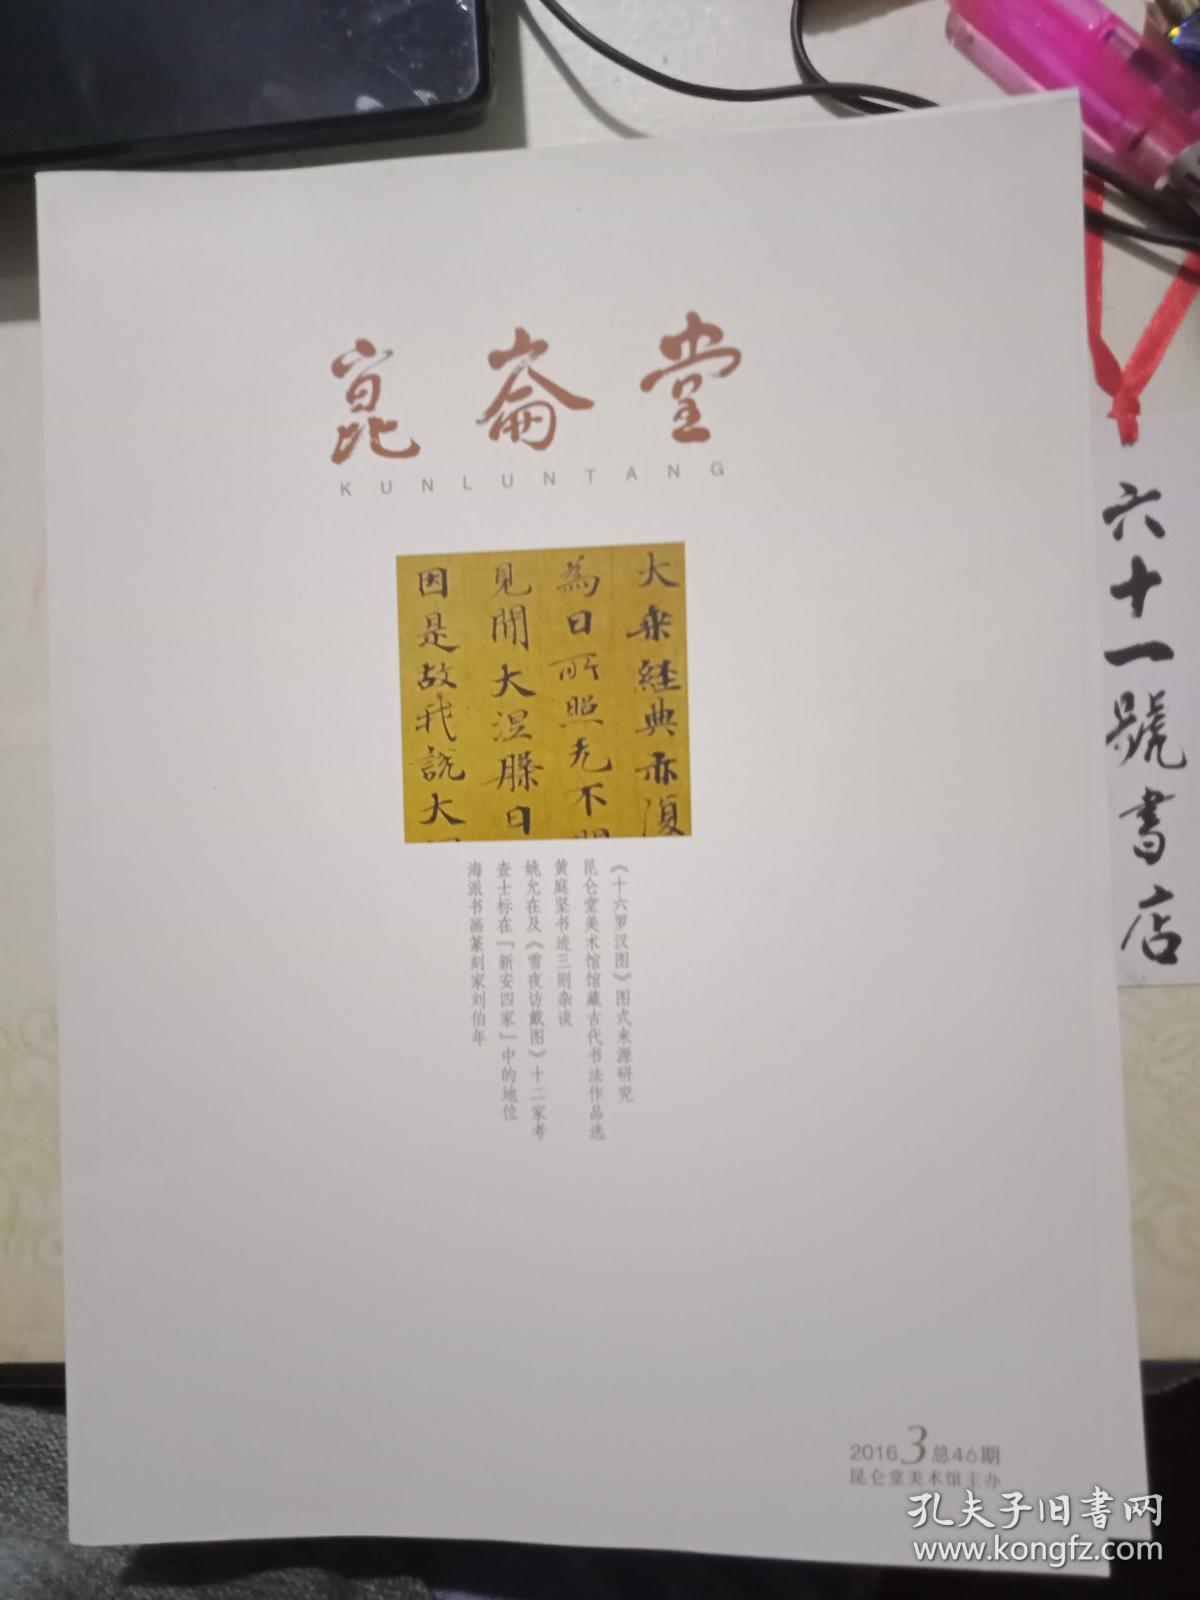 崑崙堂
KUNLUNTANG
大乘經典亦復
為日所照无不
見聞大涅槃日
因是故我說大
《十六罗汉图》图式来源研究
昆仑堂美术馆馆藏古代书法作品选
黄庭坚书迹三则杂谈
姚允在及《雪夜访戴图》十二家考
查士标在「新安四家」中的地位
海派书画篆刻家刘伯年
2016.3总46期
昆仑堂美术馆主办
六十一號書店
孔夫子旧书网
www.kongfz.com